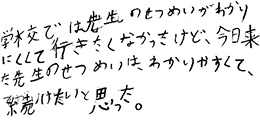 学校では先生のせつめいがわかり
にくくて行きたくなかったけど、今日来
た先生のせつめいはわかりやすくて、
続けたいと思った。